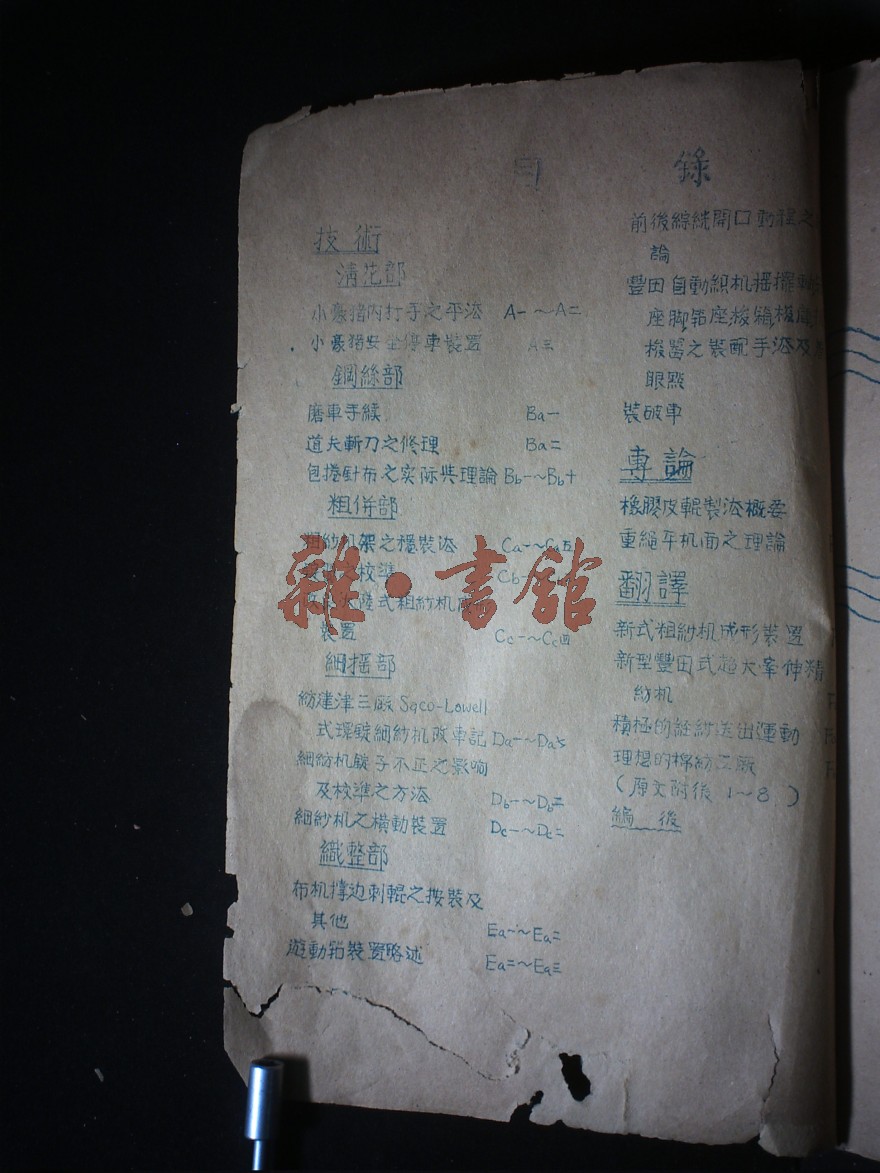 目 錄
技 術
清花部
小豪猪內打手之平法 A一～A二
小豪猪安全停車裝置 A三
鋼絲部
磨車手續 Ba一
道夫斬刀之修理 Ba二
包捲針布之实际與理論 Bb一～Bb十
粗併部
粗紗机架之穩裝法 Ca一～Ca五
校準 Cb
式粗紗机
裝置 Cc一～Cc四
細搖部
紡建津三廠 Saco-Lowell
式環錠細紗机改車記 Da一～Da
細紡机錠子不正之影响
及校準之方法 Db一～Db二
細紗机之橫動裝置 Dc一～Dc二
織整部
布机撑边刺輥之按裝及
其他 Ea一～Ea二
遊動筘裝置略述 Ea二～Ea三
前後綜絖開口動程之
論
豐田自動織机摇擺
座脚筘座梭箱板
機器之裝配手法及
眼點
裝破車
專論
橡膠皮輥製法概要
重繩平机面之理論
翻譯
新式粗紗机成形裝置
新型豐田式超大牽伸精
紡机
積極的經紗送出運動
理想的棉紡工廠
(原文附後 1～8 )
編 後
雜·書館